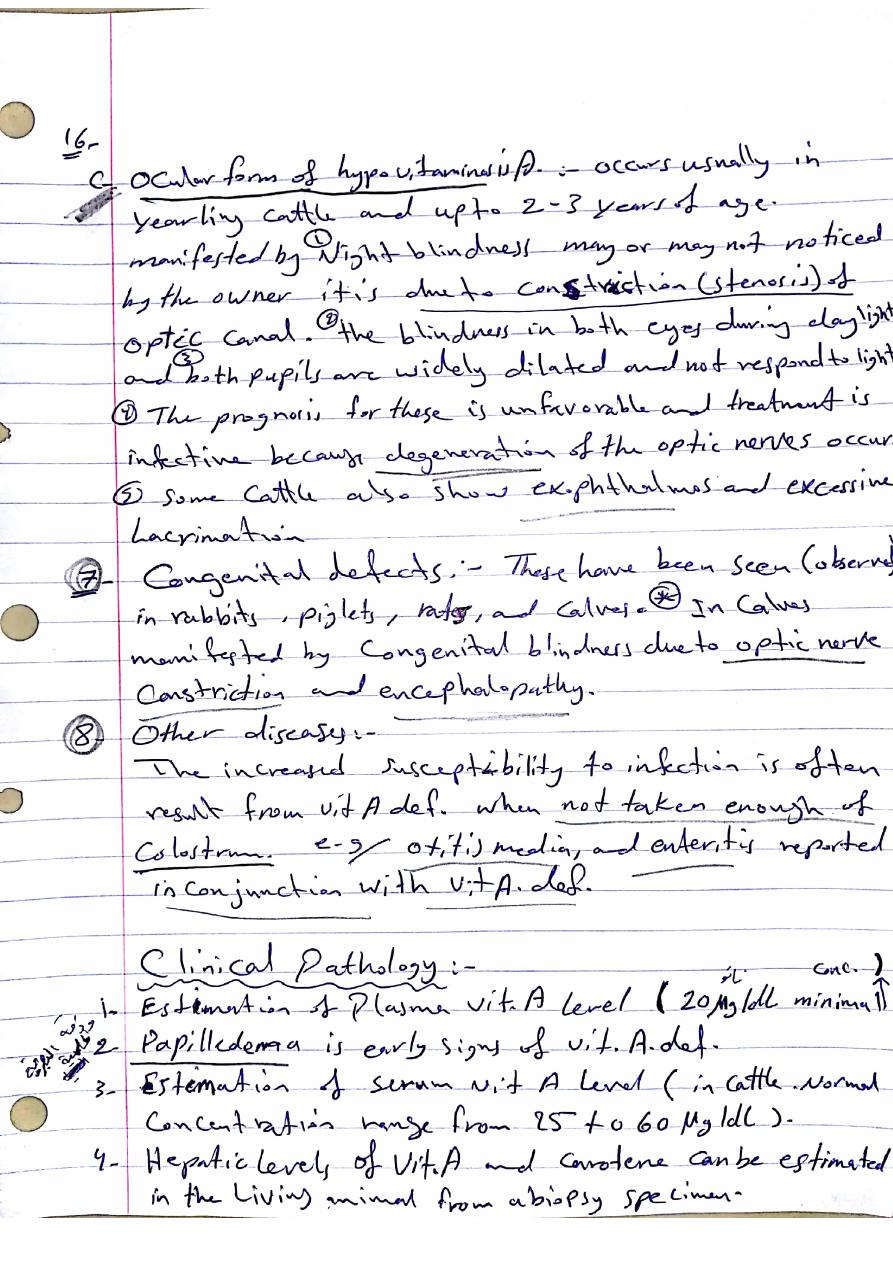 16-
C- Ocular form of hypovitaminosis A. :- occurs usually in
yearling cattle and upto 2-3 years of age.
manifested by ① Night blindness may or may not noticed
by the owner it is due to constriction (stenosis) of
optic canal. ② the blindness in both eyes during daylight
and ③ both pupils are widely dilated and not respond to light
④ The prognosis for these is unfavorable and treatment is
infective because degeneration of the optic nerves occur
⑤ Some Cattle also show exophthalmos and excessive
Lacrimation
⑦- Congenital defects:- These have been seen (observe
in rabbits, piglets, rats, and Calves. * In Calves
manifested by Congenital blindness due to optic nerve
Constriction and encephalopathy.
⑧ Other diseases:-
The increased susceptibility to infection is often
result from vit A def. when not taken enough of
Colostrum. e-g/ otitis media, and enteritis reported
in conjunction with vit A. def.
Clinical Pathology:-
conc.)
1- Estimation of Plasma vit. A level (20 Mg/dL minimal
2- Papilledema is early signs of vit. A. def.
3- Estemation of serum vit A level (in cattle. Normal
Concentration range from 25 to 60 Mg/dL).
4- Hepatic levels of Vit. A and carotene can be estimated
in the Living animal from a biopsy specimen.